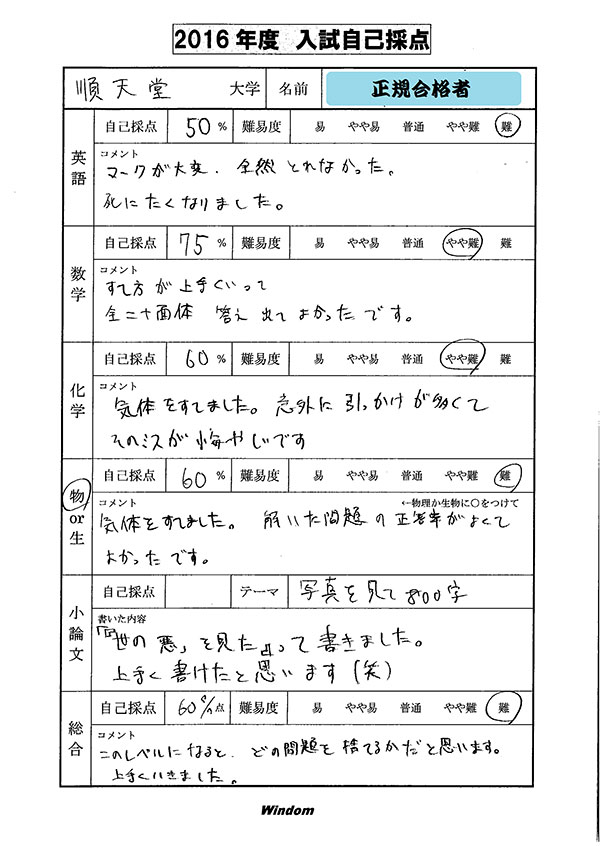 2016年度 入試自己採点
順天堂 大学 名前 正規合格者
英語
自己採点 50 % 難易度 易 やや易 普通 やや難 難
コメント
マークが大変. 全然 とれなかった。
死にたくなりました。
数学
自己採点 75 % 難易度 易 やや易 普通 やや難 難
コメント
すて方が上手くいって
全二十面体 答え出てよかったです。
化学
自己採点 60 % 難易度 易 やや易 普通 やや難 難
コメント
気体をすてました。意外に引っかけが多くて
そのミスが悔やしいです
物or生
自己採点 60 % 難易度 易 やや易 普通 やや難 難
コメント ←物理か生物に〇をつけて
気体をすてました。 解いた問題の正答率がよくて
よかったです。
小論文
自己採点 テーマ 写真を見て800字
書いた内容
の悪」を見た』って書きました。
上手く書けたと思います(笑)
総合
自己採点 60% 点 難易度 易 やや易 普通 やや難 難
コメント
このレベルになると、どの問題を捨てるかだと思います。
上手くいきました。
Windom